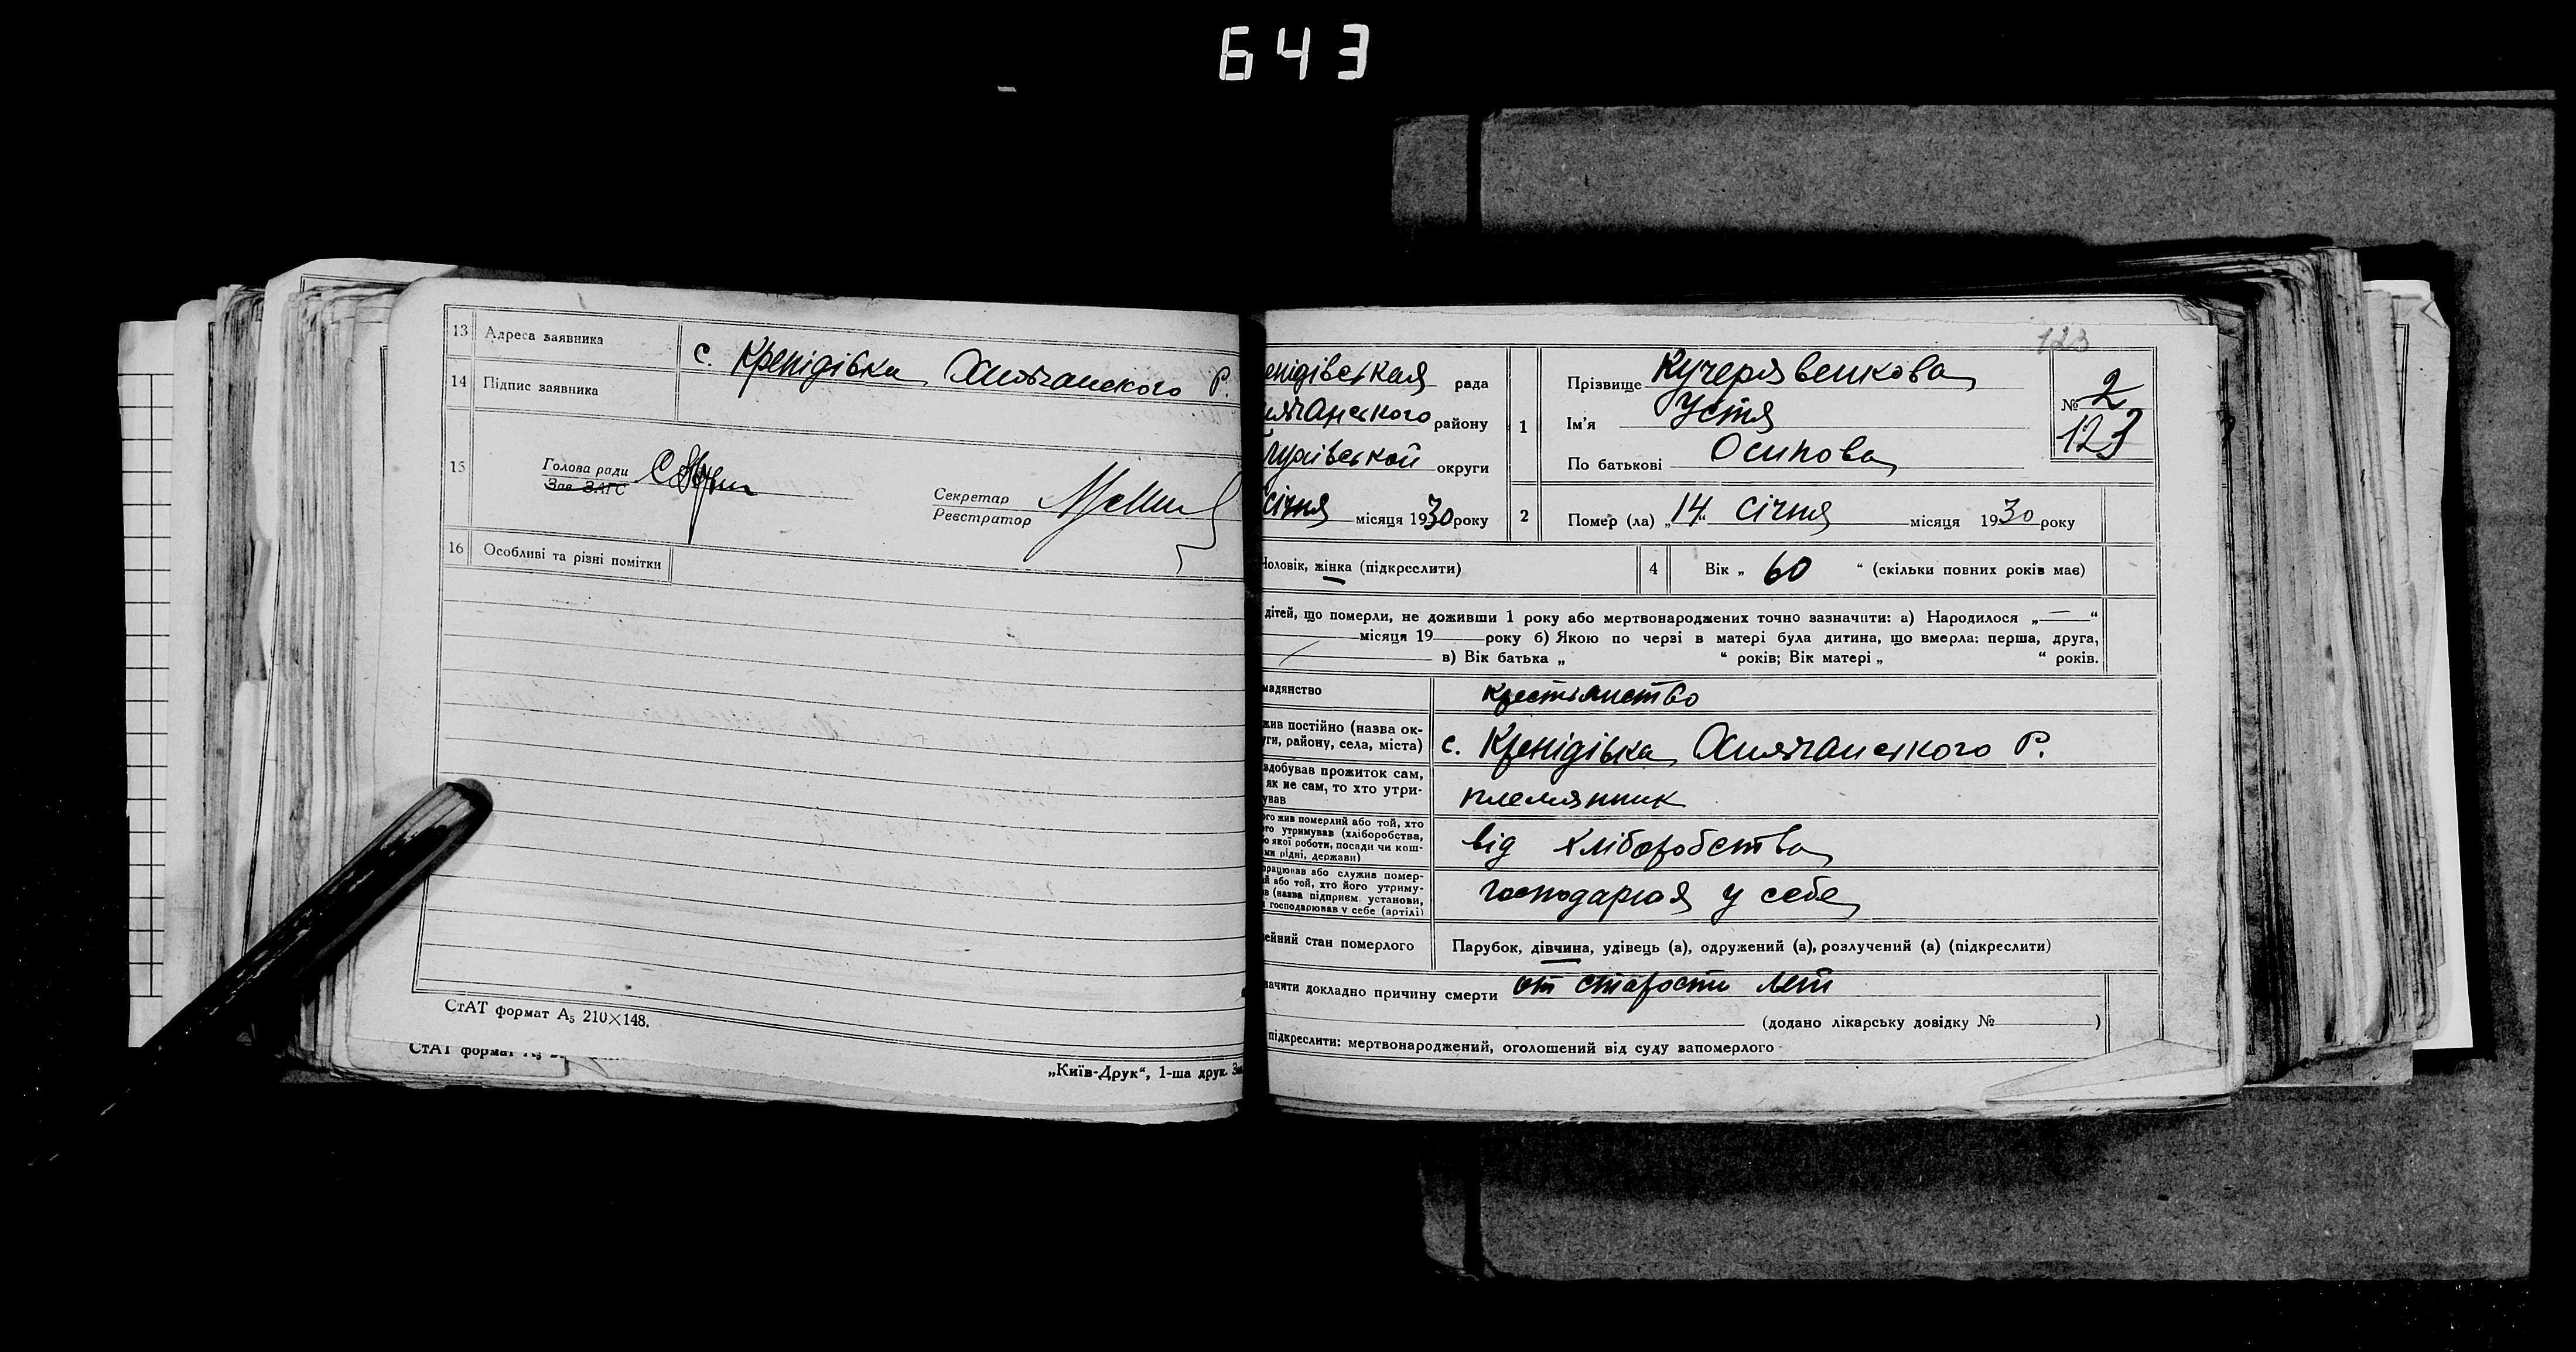 643
13 Адреса заявника с. Кренідівка Хильчанского Р.
14 Підпис заявника
15 Голова ради
Зав. ЗАГС
Секретар
Реєстратор
16 Особливі та різні помітки
СтАТ формат А5 210×148.
СтАТ формат А5
„Київ-Друк“, 1-ша друк. Зак
123
енідівськая рада
района району
округи
січня місяця 1930 року
1 Прізвище Кучерявенкова
Ім'я Устя
По батькові Осипова
№ 2
123
2 Помер (ла) „14“ січня місяця 1930 року
Чоловік, жінка (підкреслити)
4 Вік „ 60 “ (скільки повних років має)
дітей, що померли, не доживши 1 року або мертвонароджених точно зазначити: а) Народилося „—“
місяця 19 року б) Якою по черзі в матері була дитина, що вмерла: перша, друга,
в) Вік батька „ “ років; Вік матері „ “ років.
мадянство крестянство
жив постійно (назва ок-
уги, району, села, міста) с. Кренідівка Хильчанського Р.
здобував прожиток сам,
як не сам, то хто утри-
ував племянник
ого жив померлий або той, хто
го утримував (хліборобства,
о якої роботи, посади чи кош-
ми рідні, держави) від хліборобства
працював або служив помер-
й або той, хто його утриму-
в (назва підприєм. установи,
і господарював у себе (артілі) господарюя у себе
ейний стан померлого Парубок, дівчина, удівець (а), одружений (а), розлучений (а) (підкреслити)
начити докладно причину смерти от старости лет
(додано лікарську довідку № )
підкреслити: мертвонароджений, оголошений від суду запомерлого